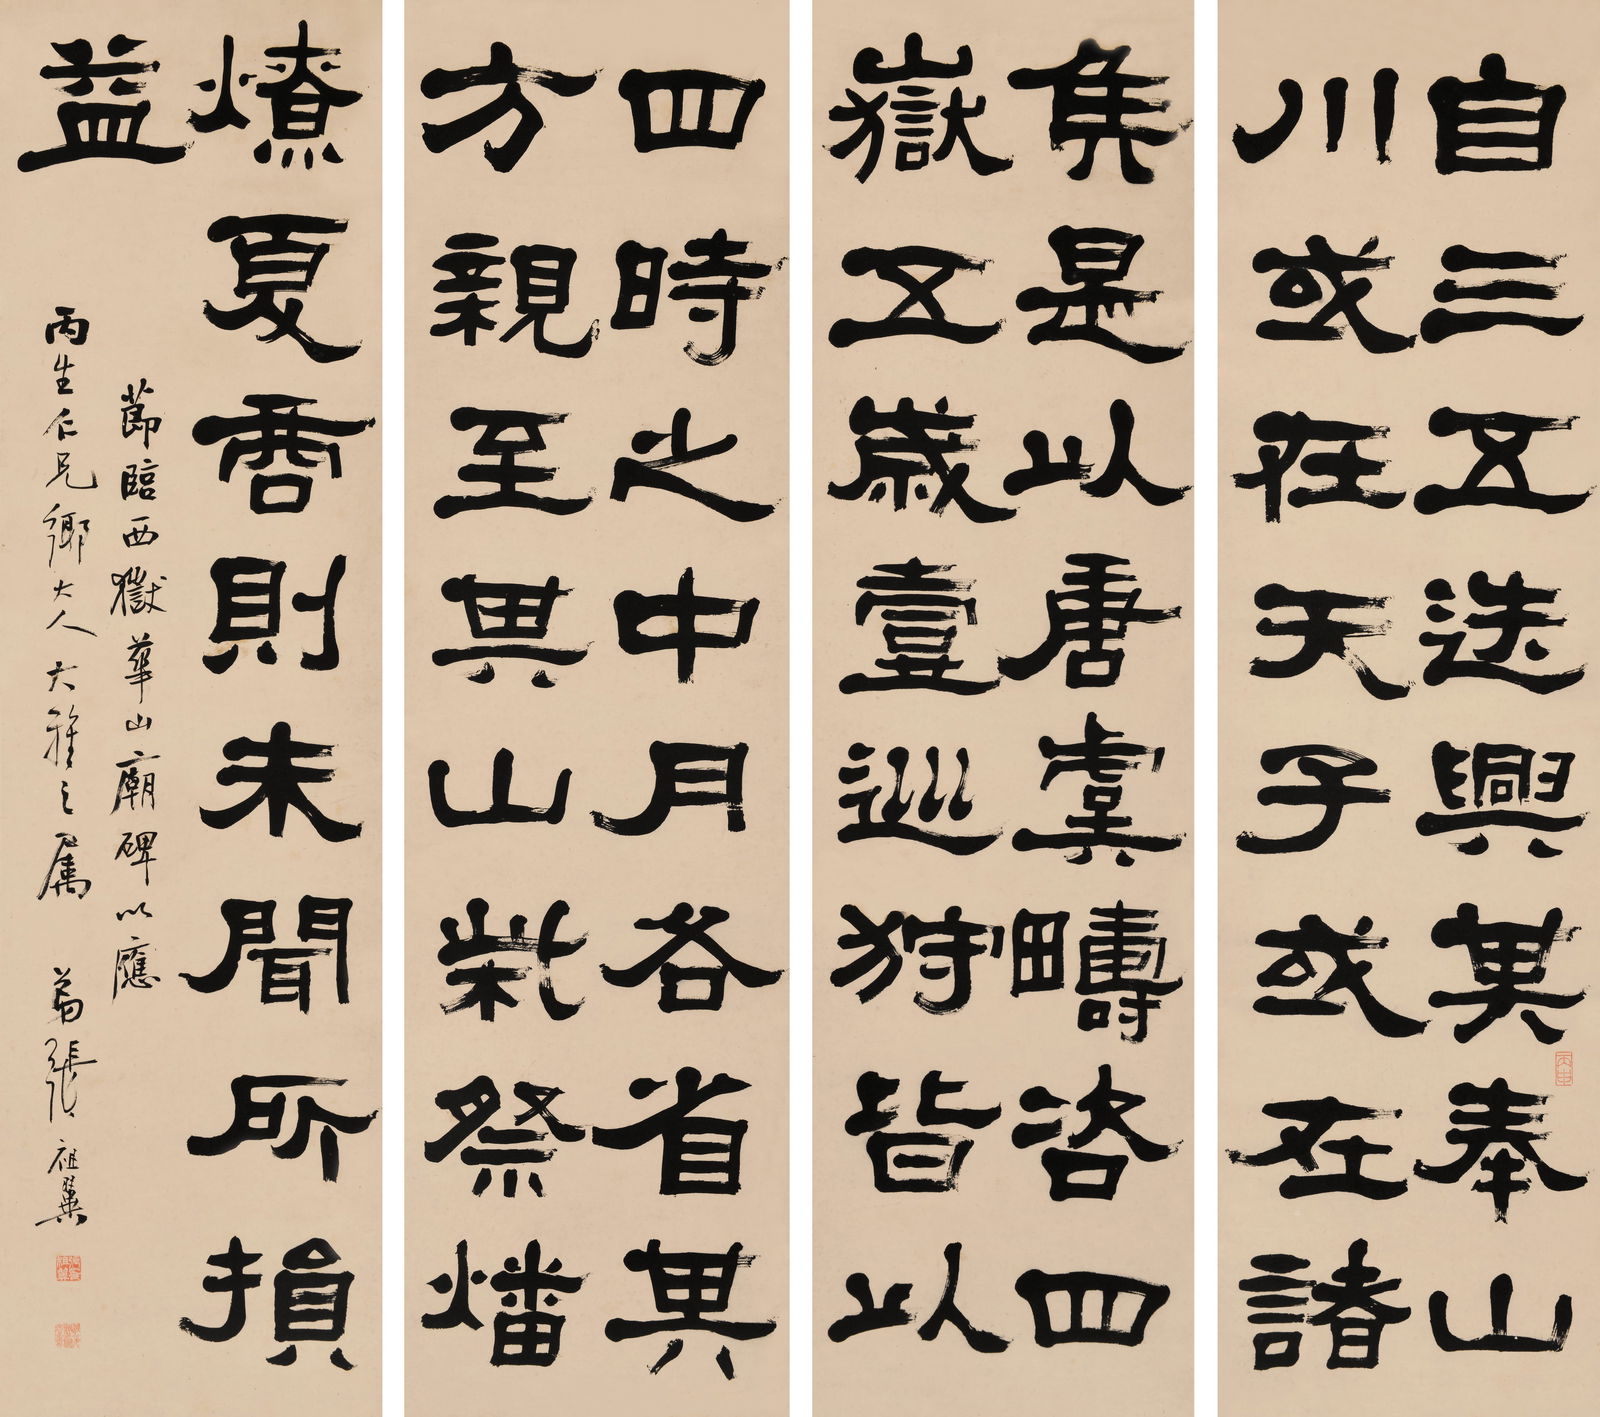 自三五迭興其奉山
川或在天子或在諸
矦是以唐虞疇咨四
嶽五歲壹巡狩皆以
四時之中月各省其
方親至其山柴祭燔
燎夏商則未聞所損
益
節臨西嶽華山廟碑以應
丙生仁兄鄉大人大雅之屬 弟張祖翼
丙申